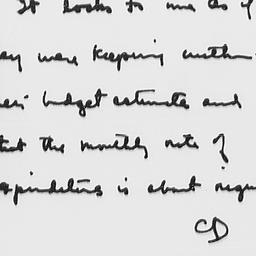 It looks to me as if
ey were keeping within
eir budget estimate and
that the monthly rate of
xpenditure is about
CD